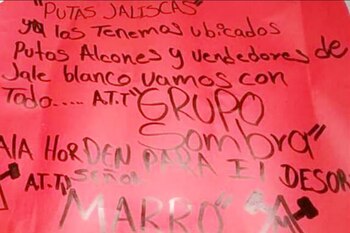 "PUTAS JALISCAS"
ya los Tenemos ubicados
Putos Alcones y vendedores de
Jale blanco vamos con
Todo..... A.T.T "GRUPO
Sombra"
A HORDEN PARA El DESOR
AT.T SEÑOR
MARRO"